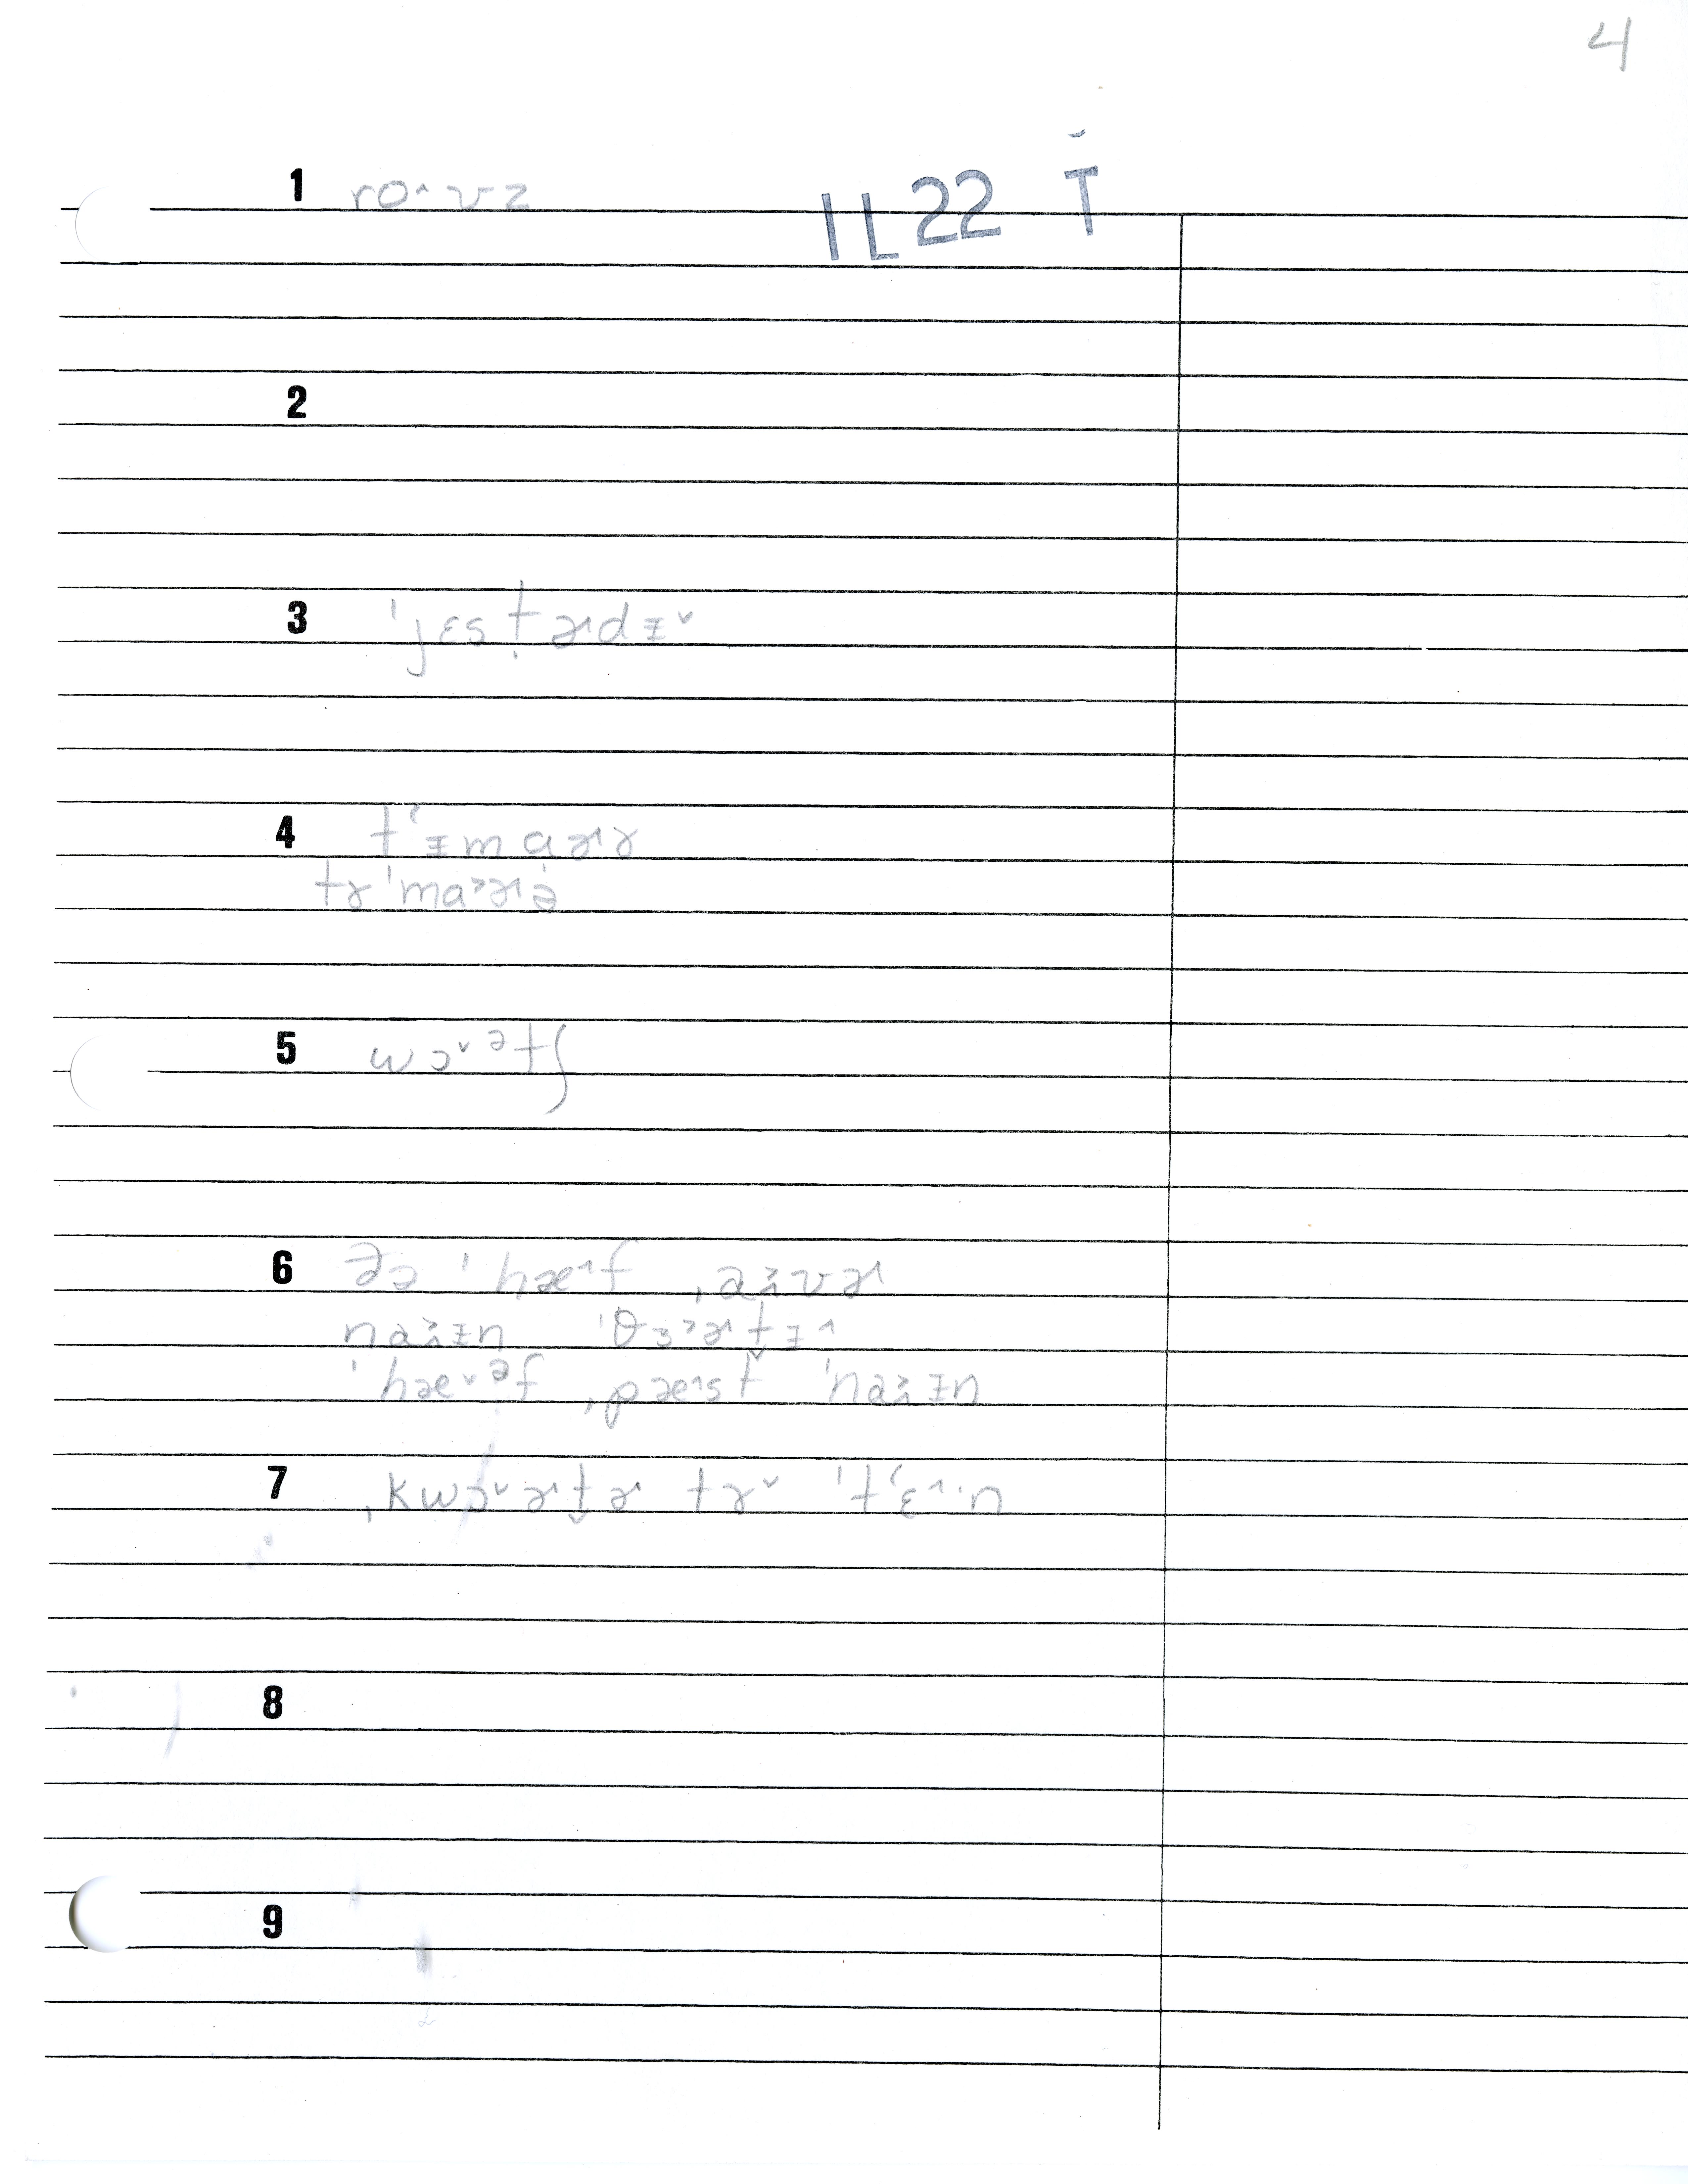 4
IL22 T̆
1 ro˄ʊz
2
3 ˈjɛst̩ɚdɪ˅
4 tʻɪmaɚɤ
tɤˈmaɚə
5 wɔ˅ᵊtʃ
6 ðə ˈhæ˄f ˌaɪvɚ
naɪn ˈθɜɚtɪ˄
ˈhæ˅ᵊf ˌpæst ˈnaɪn
7 ˌkwɔ˅ɚt̬ɚ tɤ˅ ˈtʻɛ˄·n
8
9